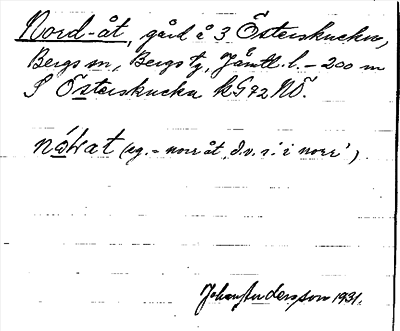 Nord-åt, gård å 3 Österskucku,
Bergs sn, Bergs tg, Jämtl. l. – 200 m
S Österskucku kG72NÖ.
nó̱ṙat (eg. = norr åt, d.v.s. i norr')
Johan Andersson 1931.